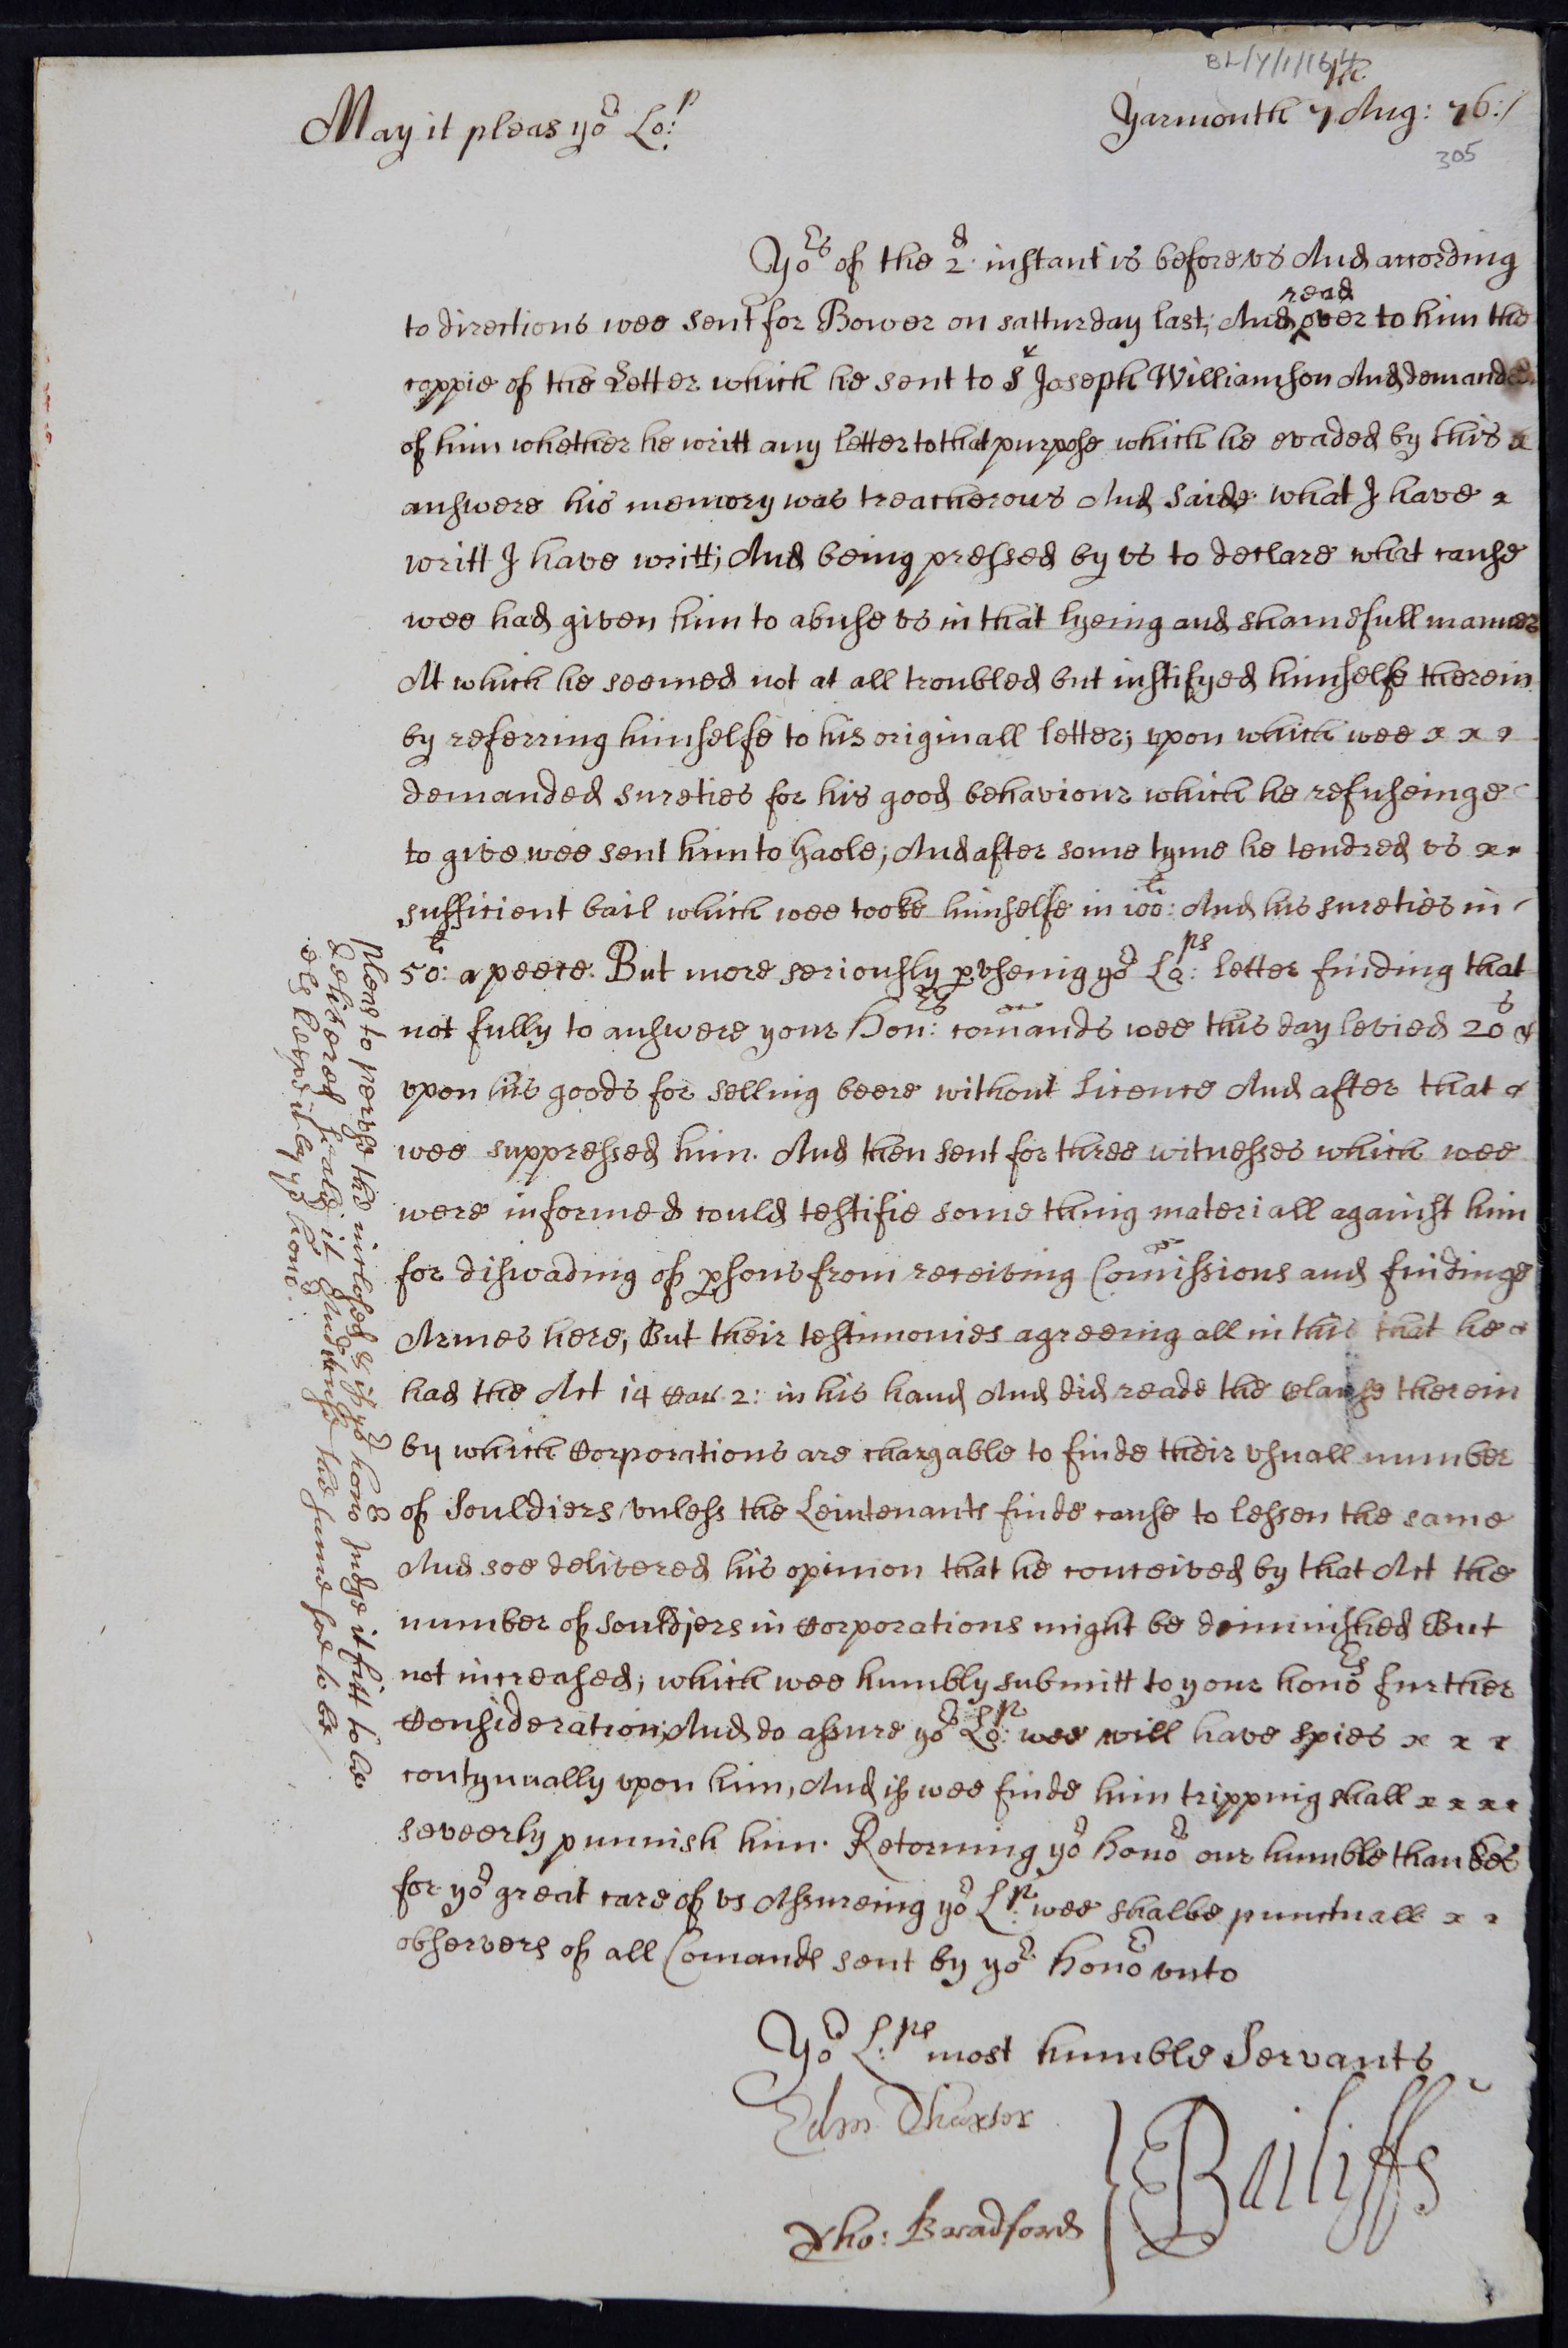 BL/Y/1/164
Yarmouth 7 Aug: 76:/
305
May it pleas yor Lo:p
Yors of the 2d instant is before vs And according
to directions wee sent for Bower on satturday last; And read over to him the
coppie of the Letter which he sent to Sr Joseph Williamson And demanded
of him whether he writt any letter to that purpose which he evaded by this x
answere his memory was treacherous And saide what I have x
writt I have writt; And being pressed by vs to declare what cause
wee had given him to abuse vs in that lyeing and shamefull manner
At which he seemed not at all troubled but iustifyed himselfe therein
by referring himselfe to his originall letter; vpon which wee x x x
demanded sureties for his good behaviour which he refuseinge
to give wee sent him to Gaole; And after some tyme he tendred vs x x
sufficient bail which wee tooke himselfe in 100li: And his sureties in
50li: a peece. But more seriously pvseing yor Lo:ps letter finding that
not fully to answere your Honrs: comands wee this day levied 20s x
vpon his goods for selling beere without Licence And after that x
wee suppressed him. And then sent for three witnesses which wee
were informed could testifie some thing materiall against him
for diswading of psons from receiving Comissions and findinge
Armes here; But their testimonies agreeing all in this that he x
had the Act 14 Car 2: in his hand And did reade the clause therein
by which Corporations are chargable to finde their vsuall number
of Souldiers vnless the Leiutenants finde cause to lessen the same
And soe delivered his opinion that he conceived by that Act the
number of souldjers in Corporations might be diminished But
not increased; which wee humbly submitt to your honors further
Consideration; And do assure yor Lo:p wee will have spies x x x
contynually vpon him, And if wee finde him tripping shall x x x x
seveerly punnish him. Retorning yor honor our humble thankes
for yor great care of vs Assureing yor L:p wee shalbe punctuall x x
observers of all Comands sent by yor honor vnto
Yor L:ps most humble Servants
Edm Thaxter
Tho: Bradford
Bailiffs
pleas to peruse the inclosed & if yor honor Judge it fitt to be
delivered seale it And cause the same soe to be
els keepe it by yor honor.